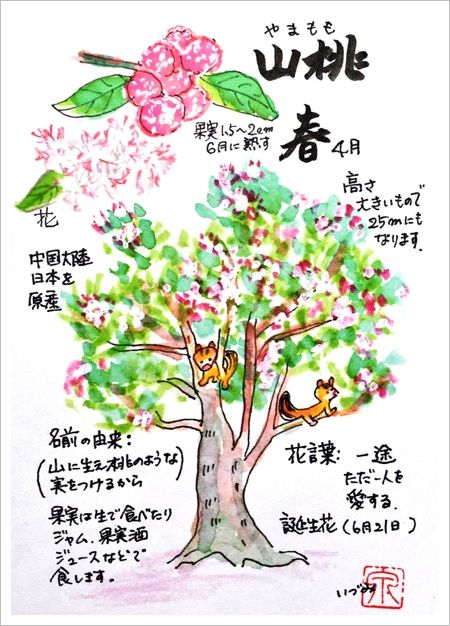 やまもも
山桃
春 4月
果実1.5~2cm
6月に熟す
花
高さ
大きいもので
25mにも
なります。
中国大陸
日本を
原産
名前の由来:
(山に生え桃のような
実をつけるから)
果実は生で食べたり
ジャム、果実酒
ジュースなどで
食します。
花言葉: 一途
ただ一人を
愛する。
誕生花(6月21日)
いづみ